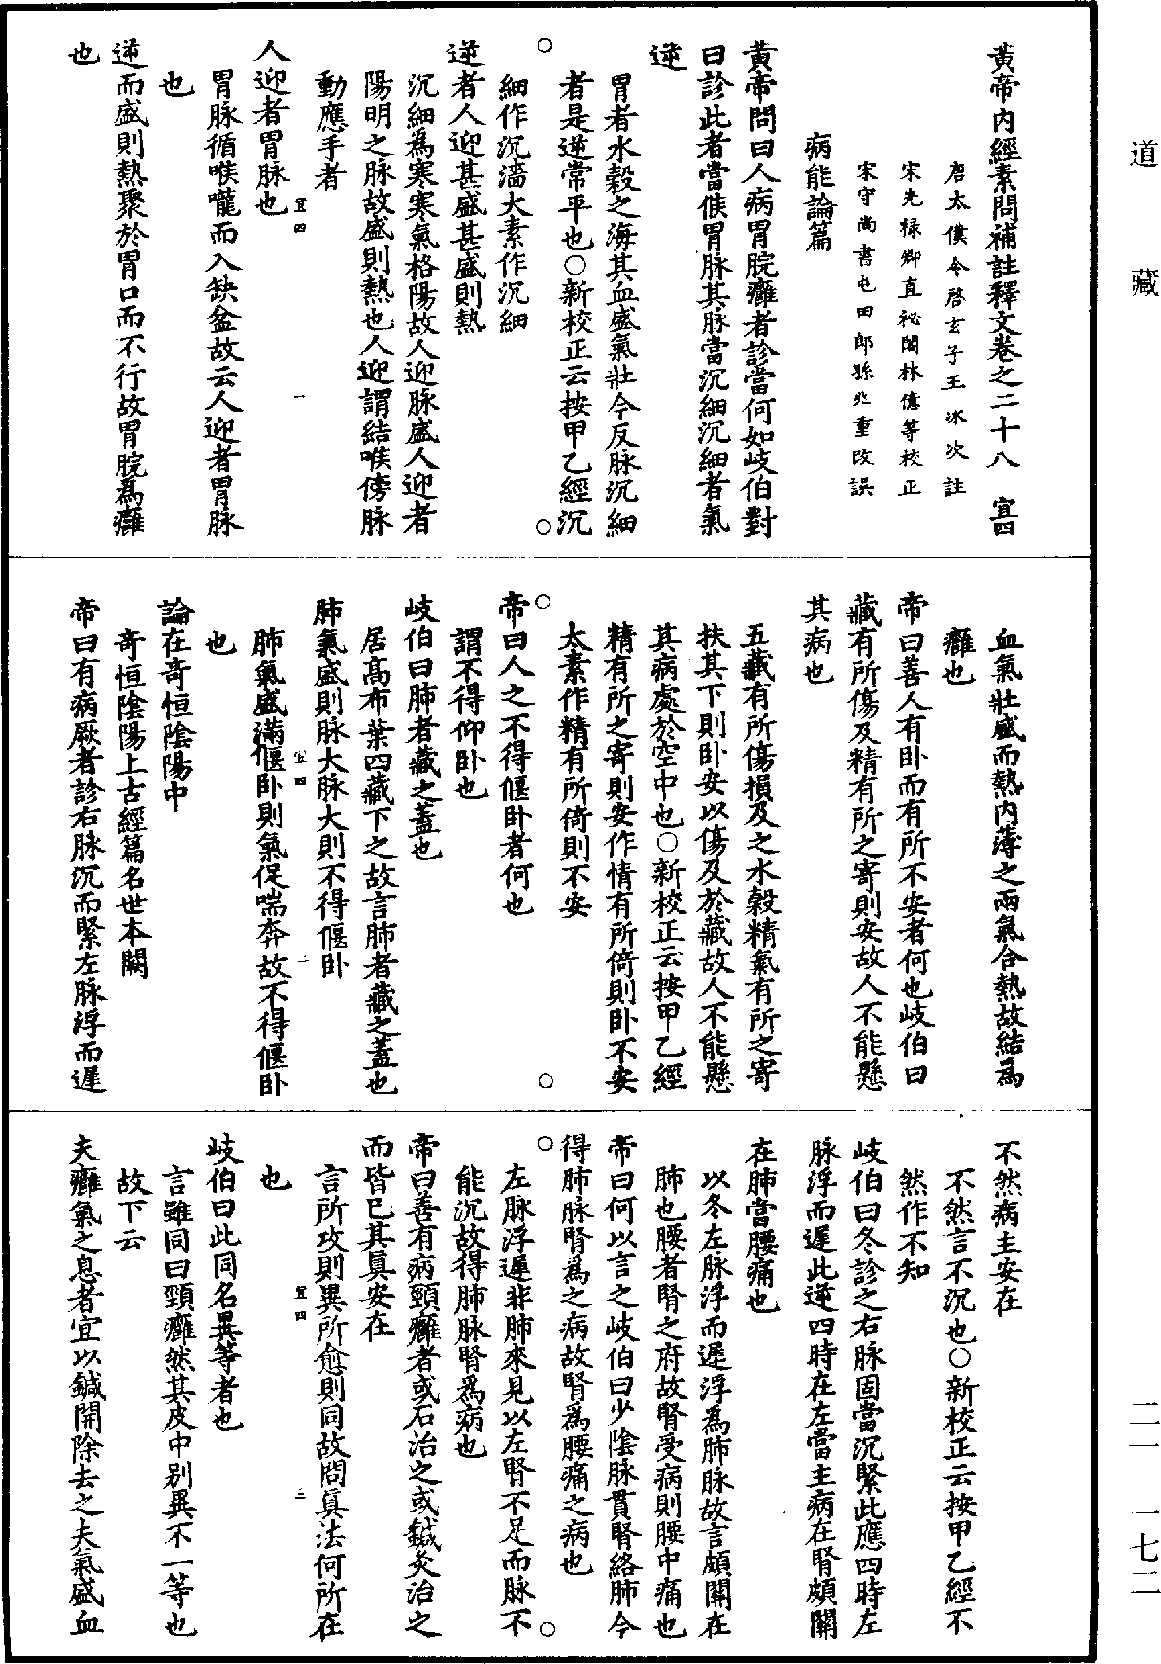 道藏
黃帝內經素問補註釋文卷之二十八 宜四
唐太僕令啓玄子王冰次註
宋光祿卿直祕閣林億等校正
宋守尚書屯田郎孫兆重改誤
病能論篇
黃帝問曰人病胃脘癰者診當何如岐伯對
曰診此者當候胃脉其脉當沉細沉細者氣
逆
胃者水穀之海其血盛氣壯今反脉沉細
者是逆常平也○新校正云按甲乙經沉
細作沉濇大素作沉細
逆者人迎甚盛甚盛則熱
沉細爲寒寒氣格陽故人迎脉盛人迎者
陽明之脉故盛則熱也人迎謂結喉傍脉
動應手者
宜四 一
人迎者胃脉也
胃脉循喉嚨而入缺盆故云人迎者胃脉
也
逆而盛則熱聚於胃口而不行故胃脘爲癰
也
血氣壯盛而熱內薄之兩氣合熱故結爲
癰也
帝曰善人有卧而有所不安者何也岐伯曰
藏有所傷及精有所之寄則安故人不能懸
其病也
五藏有所傷損及之水穀精氣有所之寄
扶其下則卧安以傷及於藏故人不能懸
其病處於空中也○新校正云按甲乙經
精有所之寄則安作情有所倚則卧不安
太素作精有所倚則不安
帝曰人之不得偃卧者何也
謂不得仰卧也
岐伯曰肺者藏之蓋也
居高布葉四藏下之故言肺者藏之蓋也
肺氣盛則脉大脉大則不得偃卧
宜四 二
肺氣盛滿偃卧則氣促喘奔故不得偃卧
也
論在奇恒陰陽中
奇恒陰陽上古經篇名世本闕
帝曰有病厥者診右脉沉而緊左脉浮而遲
不然病主安在
不然言不沉也○新校正云按甲乙經不
然作不知
岐伯曰冬診之右脉固當沉緊此應四時左
脉浮而遲此逆四時在左當主病在腎頗關
在肺當腰痛也
以冬左脉浮而遲浮爲肺脉故言頗關在
肺也腰者腎之府故腎受病則腰中痛也
帝曰何以言之岐伯曰少陰脉貫腎絡肺今
得肺脉腎爲之病故腎爲腰痛之病也
左脉浮遲非肺來見以左腎不足而脉不
能沉故得肺脉腎爲病也
帝曰善有病頸癰者或石治之或鍼灸治之
而皆已其眞安在
言所攻則異所愈則同故問眞法何所在
宜四 三
也
岐伯曰此同名異等者也
言雖同曰頸癰然其皮中別異不一等也
故下云
夫癰氣之息者宜以鍼開除去之夫氣盛血
二一 一七二